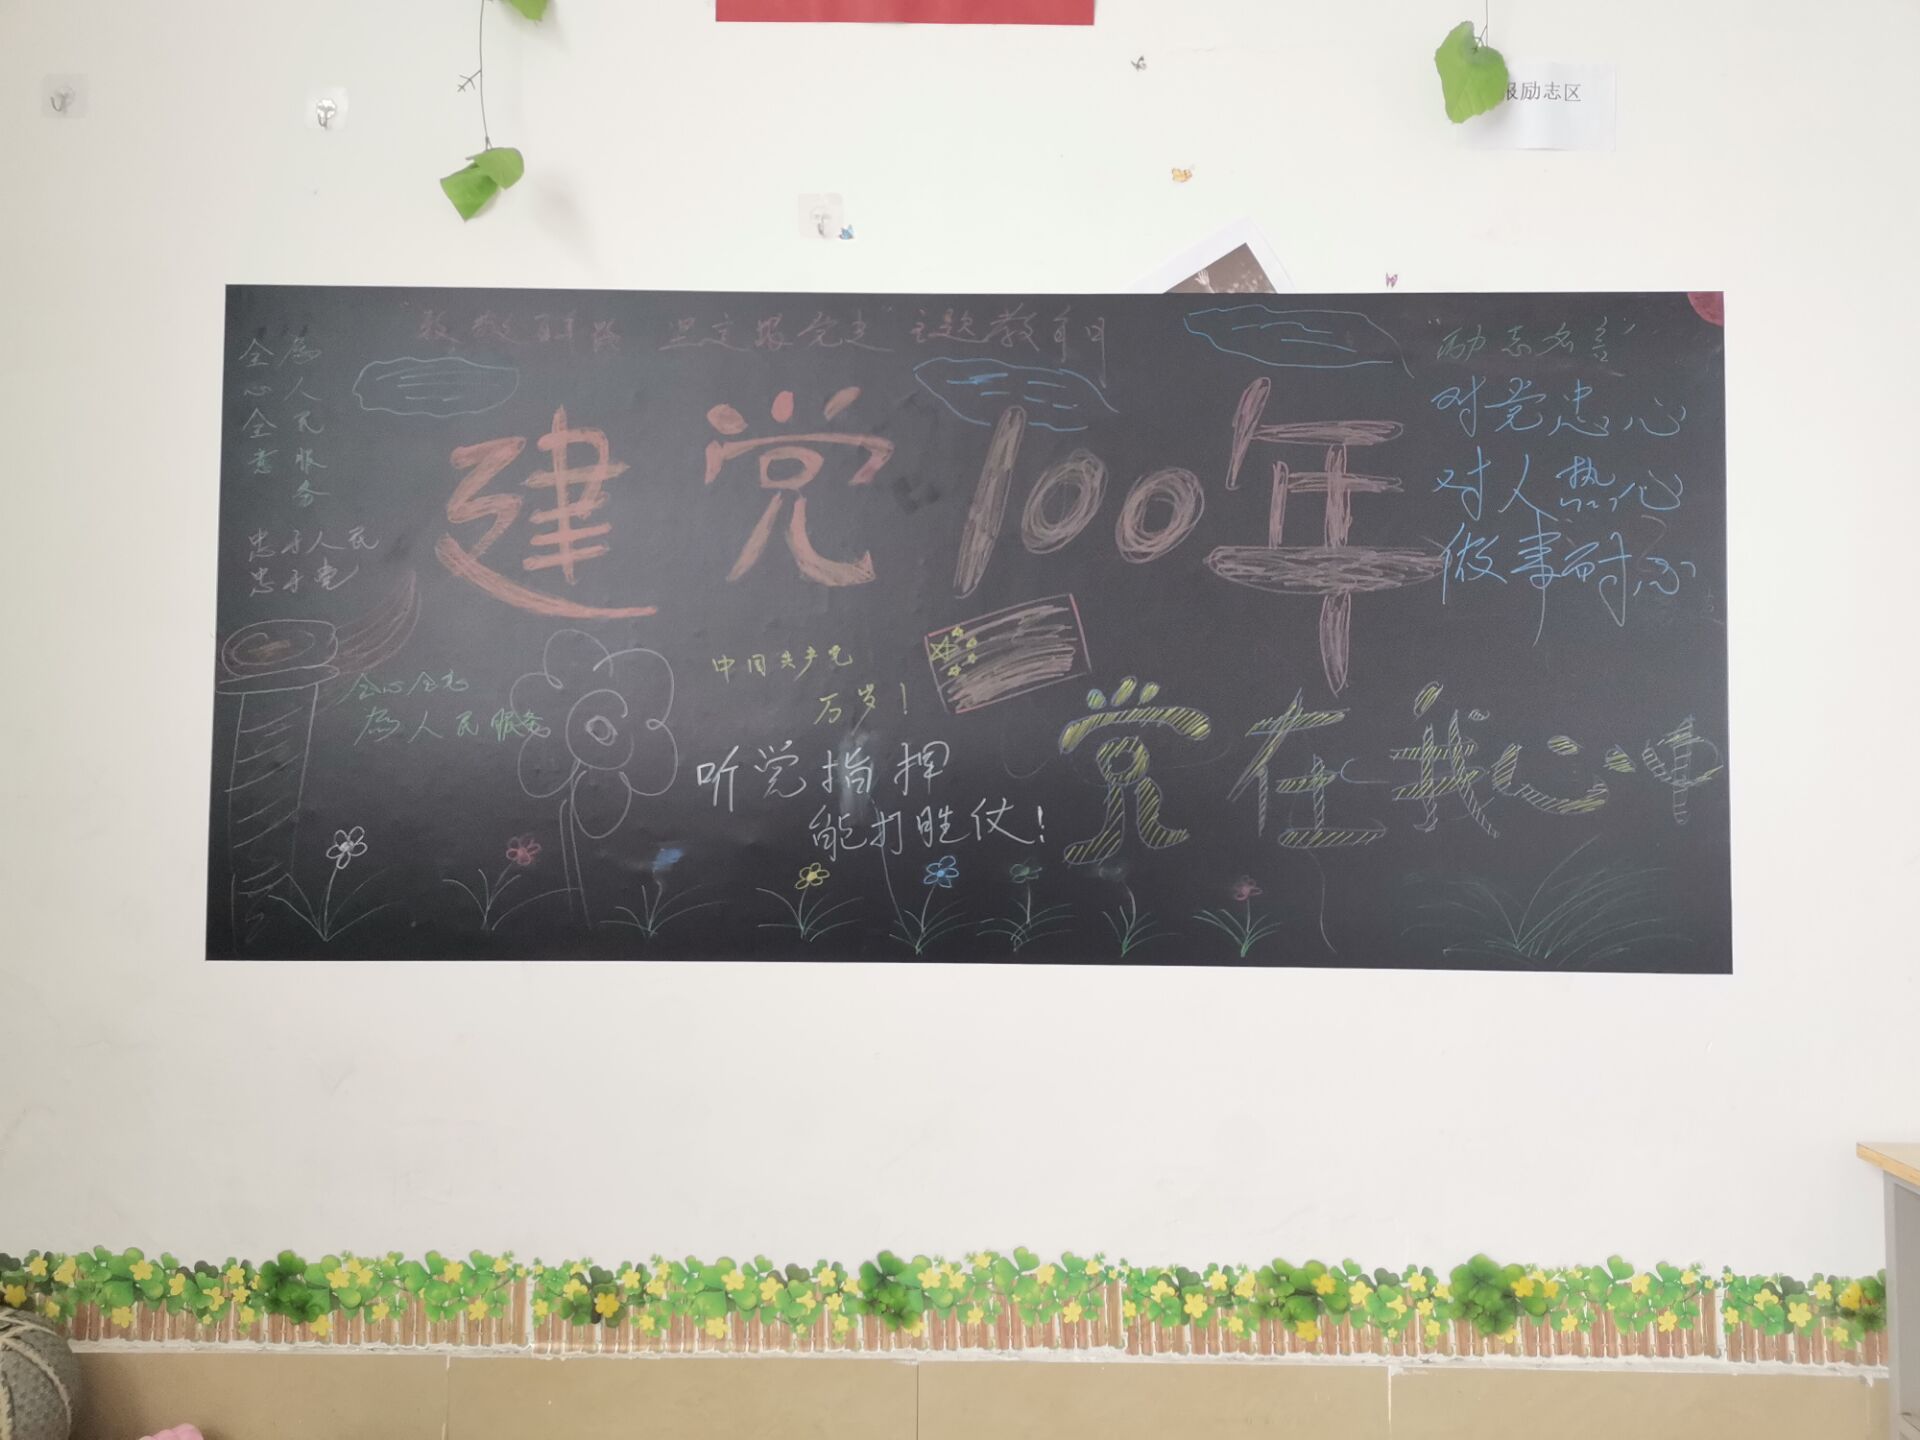 报励志区
坚定跟党走”主题教育日
“励志名言”
全心全意
为人民服务
建党100年
对党忠心
对人热心
做事耐心
忠于人民
忠于党
全心全意
为人民服务
中国共产党
万岁！
听党指挥
能打胜仗！
党在我心中